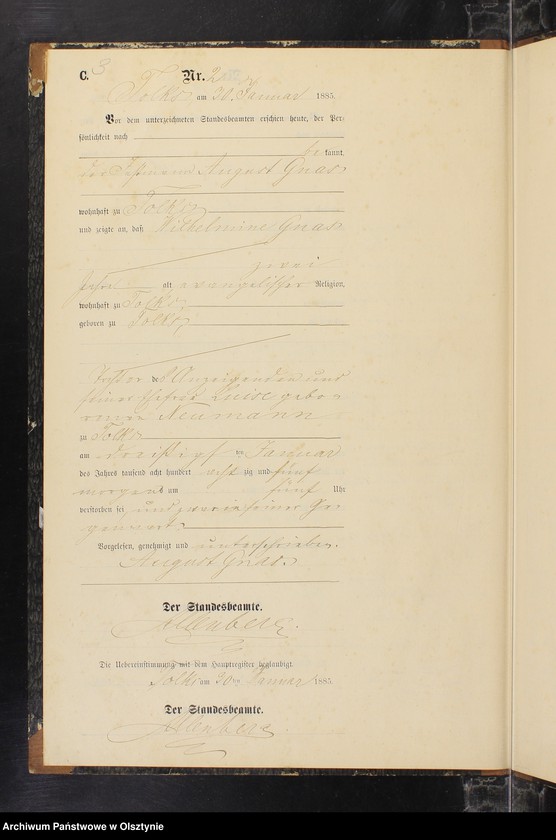 C. 3 Nr. 2
Tolks am 30. Januar 1885.
Vor dem unterzeichneten Standesbeamten erschien heute, der Per-
sönlichkeit nach
be kannt,
August Gnas
wohnhaft zu Tolks
und zeigte an, daß Wilhelmine Gnas
zwei
Jahre alt evangelischer Religion,
wohnhaft zu Tolks
geboren zu Tolks
Tochter des Anzeigenden und
seiner Ehefrau Luise gebo-
renen Neumann
zu Tolks
am dreißigsten Januar
des Jahres tausend acht hundert acht zig und fünf
morgens um fünf Uhr
verstorben sei und zwar in seiner Ge-
genwart.
Vorgelesen, genehmigt und unterschrieben.
August Gnas.
Der Standesbeamte.
Die Uebereinstimmung mit dem Hauptregister beglaubigt.
Tolks am 30ten Januar 1885.
Der Standesbeamte.
Archiwum Państwowe w Olsztynie